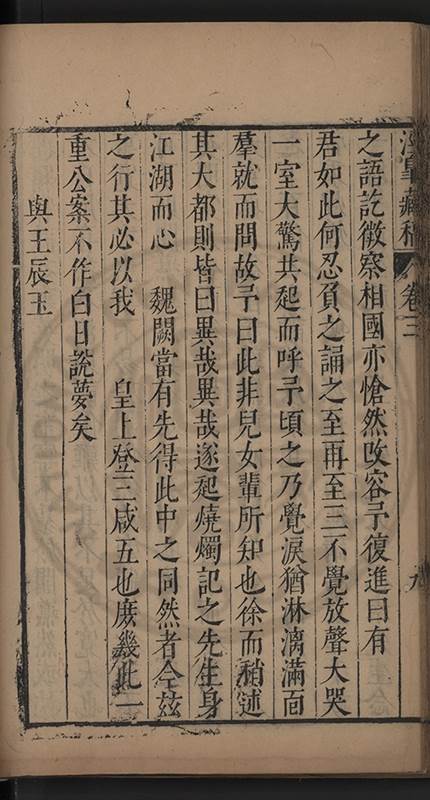 涇臯藏稿 卷三 九
之語訖徵察相國亦愴然攺容予復進曰有
君如此何忍負之誦之至再至三不覺放聲大哭
一室大驚共起而呼予頃之乃覺淚猶淋漓滿面
羣就而問故予曰此非兒女輩所知也徐而稍述
其大都則皆曰異哉異哉遂起燒燭記之先生身
江湖而心　魏闕當有先得此中之同然者今玆
之行其必以我　皇上登三咸五也庻幾此一
重公案不作白日說夢矣
與王辰玉